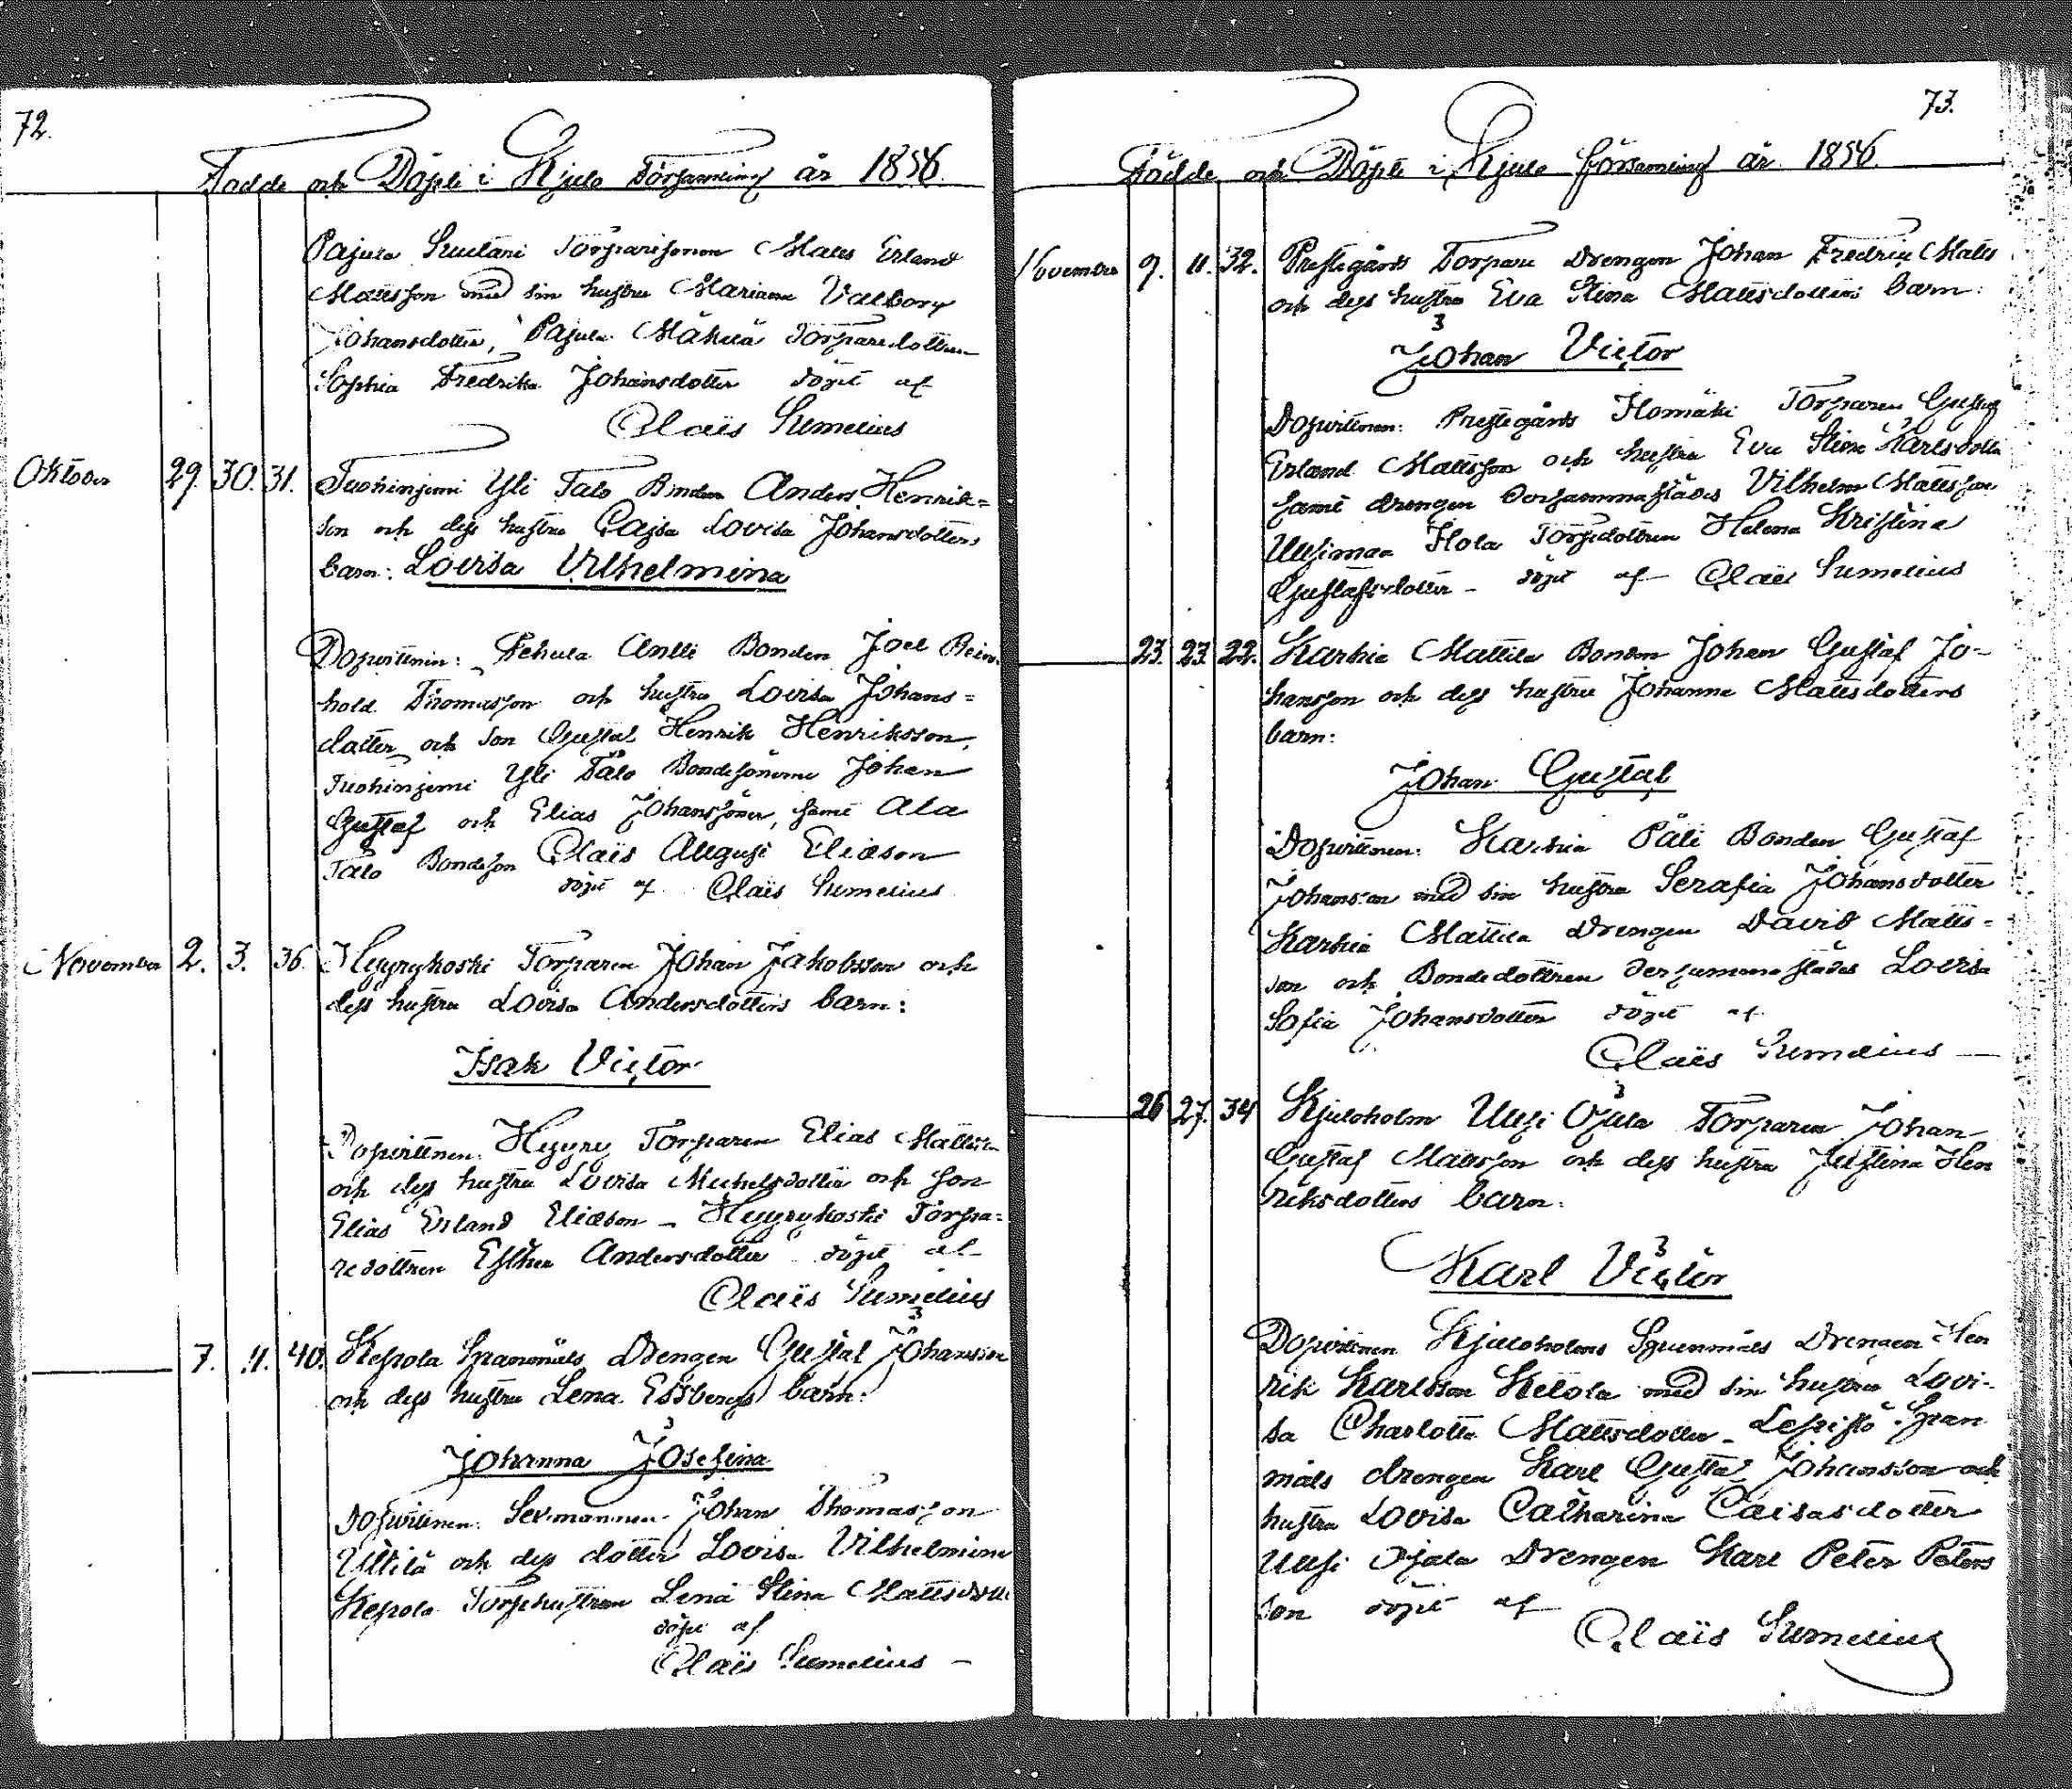 72.
Födde och Döpte i Kjulo Församling år 1856.
Pajula Suutari Torparesonen Matts Erland
Mattsson med sin hustru Mariana Valborg
Johansdotter, Pajula Mäkilä Torparedottren
Sophia Fredrika Johansdotter döpt af
Claës Sumelius
Oktober 29. 30. 31. Tuohiniemi Yli Talo Bonden Anders Henrik=
son och dess hustru Cajsa Lovisa Johansdotters
barn: Lovisa Vilhelmina
Dopvittnen: Antti Bonden Joel Rein
hold Thomasson och hustru Lovisa Johans=
dotter och son Gustaf Henrik Henriksson,
Tuohiniemi Yli Talo Bondesönerne Johan
Gustaf och Elias Johanssöner, samt Ala
Talo Bondeson Claës August Eliason
döpt af Claës Sumelius
November 2. 3. 36. Hyyrykoski Torparen Johan Jakobsson och
dess hustru Lovisa Andersdotters barn:
Isak Victor
Dopvittnen: Hyyry Torparen Elias Mattsson
och dess hustru Lovisa Michelsdotter och son
Elias Erland Eliason – Hyyrykoski Torpa=
redottren Esther Andersdotter döpt af
Claës Sumelius
7. 11. 40. Kepola Spannmåls Drengen Gustaf Johansson
och dess hustru Lena Essbergs barn:
Johanna Josefina
Dopvittnen: Sexmannen Johan Thomasson
Uttila och dess dotter Lovisa Vilhelmina
Kepola Torphustrun Lena Stina Mattsdott
döpt af
Claës Sumelius –
73.
Födde och Döpte i Kjulo församling år 1856.
November 9. 11. 32. Prestegårds Torpare Drengen Johan Fredric Matts
och dess hustru Eva Stina Mattsdotters barn:
Johan Victor
Dopvittnen: Prestegårds Ilomäki Torparen Gustaf
Erland Mattsson och hustru Eva Stina Karlsdotter
samt drengen dersammastädes Vilhelm Mattsson
Uusimaa Torpdottren Helena Kristina
Gustafsdotter – döpt af Claës Sumelius
23. 23. 22. Karhia Mattila Bonden Johan Gustaf Jo-
hansson och dess hustru Johanna Mattsdotters
barn:
Johan Gustaf
Dopvittnen: Karhia Päli Bonden Gustaf
Johansson med sin hustru Serafia Johansdotter
Karhia Mattila Drengen David Matts=
son och Bondedottren dersammastädes Lovisa
Sofia Johansdotter döpt af
Claës Sumelius –
26 27. 34 Kjuloholm Uusi Ojala Torparen Johan
Gustaf Mattsson och dess hustru Justina Hen
riksdotters barn:
Karl Victor
Dopvittnen Kjuloholms Spannmåls Drengen Hen
rik Karlsson Kelola med sin hustru Lovi-
sa Charlotta Mattsdotter – Lepistö Span
måls drengen Karl Gustaf Johansson och
hustru Lovisa Catharina Caisasdotter
Uusi Ojala Drengen Karl Peter Peters
son döpt af
Claës Sumelius